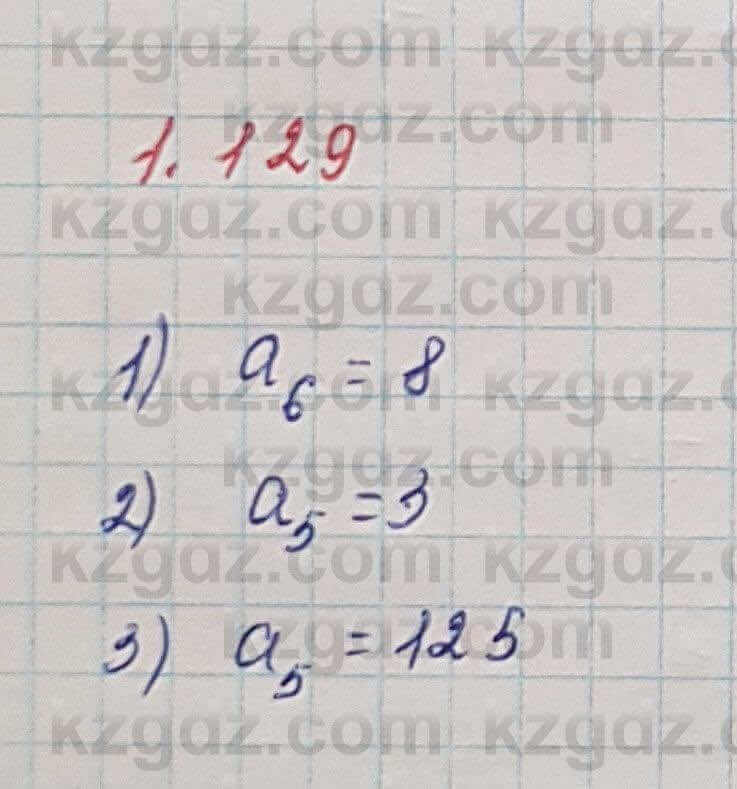 kzgaz.com kzgaz.com
kzgaz.com
1.129
kzgaz.com kzgaz.com
kzgaz.com
1) a₆ = 8
kzgaz.com kzgaz.com
kzgaz.com
2) a₅ = 3
kzgaz.com kzgaz.com
kzgaz.com
3) a₅ = 125
kzgaz.com kzgaz.com